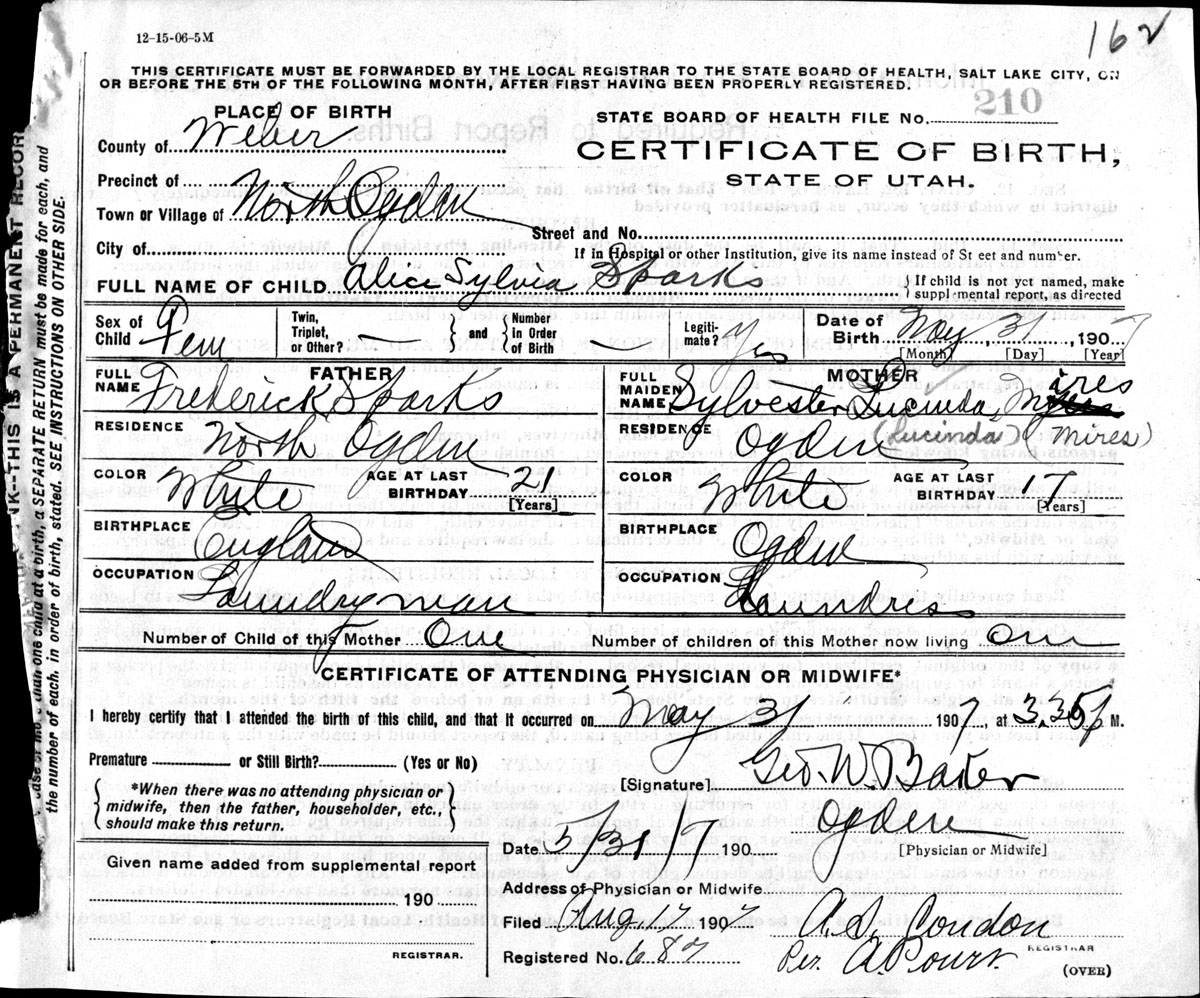 12-15-06-5M
162
THIS CERTIFICATE MUST BE FORWARDED BY THE LOCAL REGISTRAR TO THE STATE BOARD OF HEALTH, SALT LAKE CITY, ON
OR BEFORE THE 5TH OF THE FOLLOWING MONTH, AFTER FIRST HAVING BEEN PROPERLY REGISTERED.
PLACE OF BIRTH
County of Weber
Precinct of
Town or Village of North Ogden
City of
STATE BOARD OF HEALTH FILE No. 210
CERTIFICATE OF BIRTH,
STATE OF UTAH.
Street and No.
If in Hospital or other Institution, give its name instead of St eet and number.
FULL NAME OF CHILD Alice Sylvia Sparks
If child is not yet named, make
supplemental report, as directed
Sex of Child Fem
Twin, Triplet, or Other?
and
Number in Order of Birth
Legiti-mate? Yes
Date of Birth May 31 1907
[Month] [Day] [Year]
FATHER
FULL NAME Frederick Sparks
RESIDENCE North Ogden
COLOR White AGE AT LAST BIRTHDAY 21
[Years]
BIRTHPLACE England
OCCUPATION Laundryman
MOTHER
FULL MAIDEN NAME Sylvester Lucinda, Mires
RESIDENCE Ogden (Lucinda) (Mires)
COLOR White AGE AT LAST BIRTHDAY 17
[Years]
BIRTHPLACE Ogden
OCCUPATION Laundres
Number of Child of this Mother One
Number of children of this Mother now living one
CERTIFICATE OF ATTENDING PHYSICIAN OR MIDWIFE*
I hereby certify that I attended the birth of this child, and that it occurred on May 31 1907, at 3,35 P M.
Premature or Still Birth? (Yes or No)
*When there was no attending physician or
midwife, then the father, householder, etc.,
should make this return.
[Signature] Geo. W. Baker
Ogden
[Physician or Midwife]
Date 5/31/7 190
Given name added from supplemental report
190
REGISTRAR.
Address of Physician or Midwife
Filed Aug 17 1907
A. S. Condon
REGISTRAR
Registered No. 687
Per.
(OVER)
NK--THIS IS A PERMANENT RECOR
than one child at a birth, a SEPARATE RETURN must be made for each, and
the number of each, in order of birth, stated. SEE INSTRUCTIONS ON OTHER SIDE.